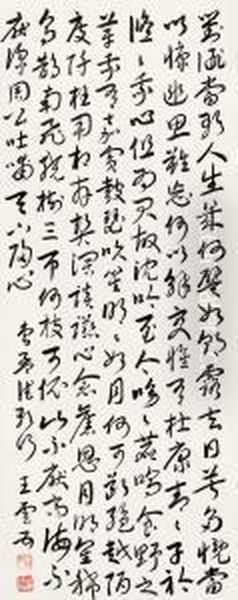 對酒當歌人生幾何譬如朝露去日苦多慨當
以慷幽思難忘何以解憂惟有杜康青〻子衿
悠〻我心但為君故沈吟至今呦〻鹿鳴食野之
苹我有嘉賓鼓瑟吹笙明〻如月何可斷絕越陌
度阡枉用相存契闊談讌心念舊恩月明星稀
烏鵲南飛繞樹三匝何枝可依山不厭高海不
厭深周公吐哺天下歸心
曹孟德短歌行 王雲五